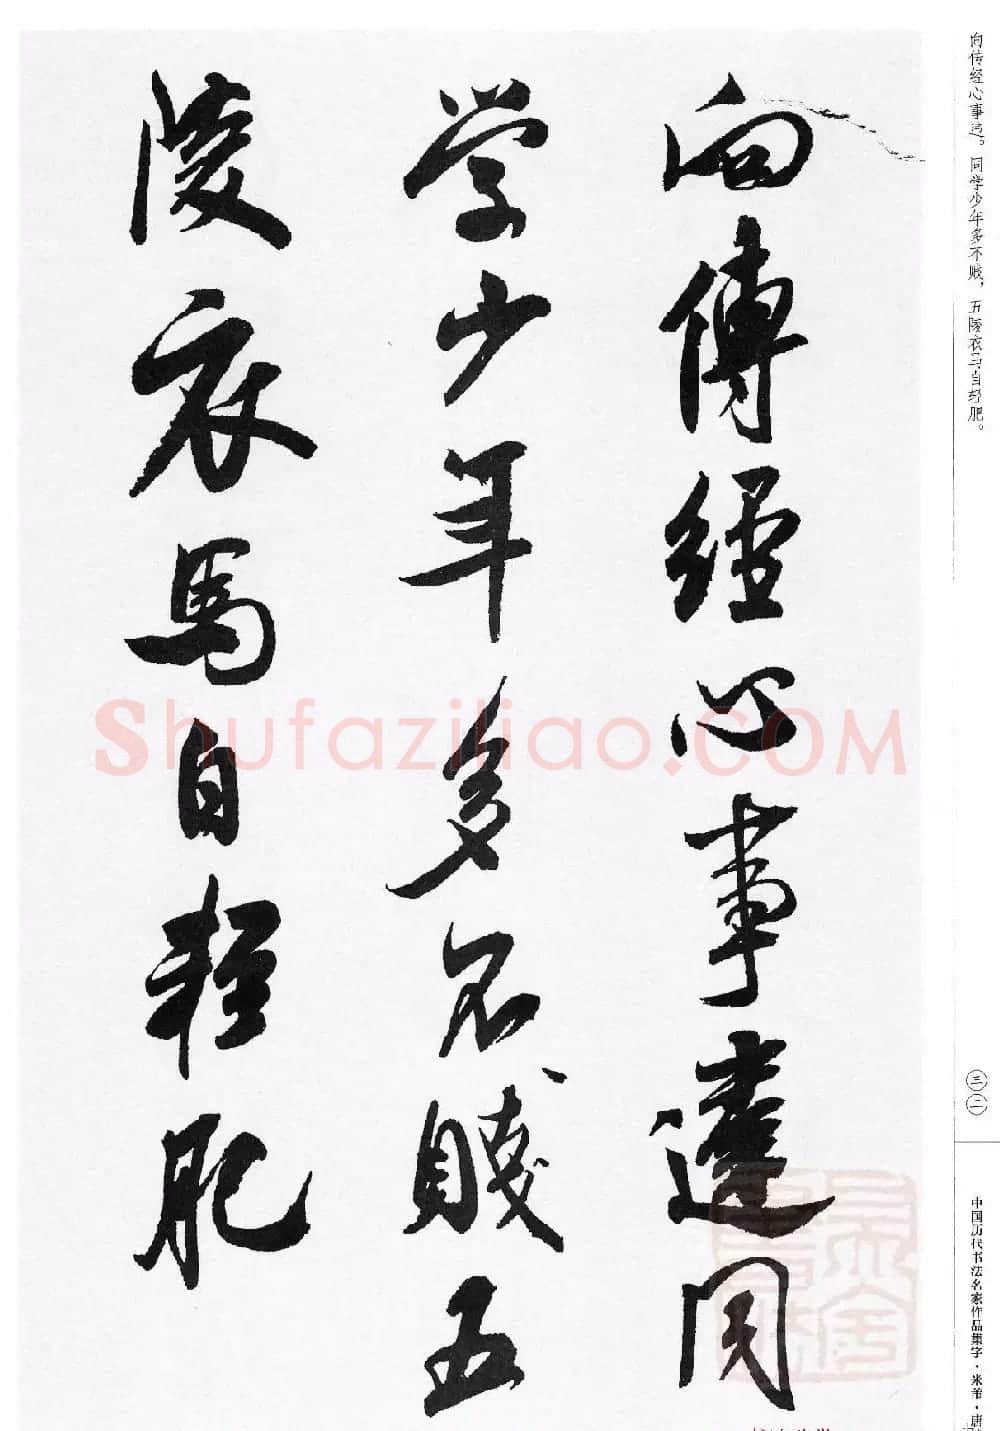 向傳經心事違同
学少年多不賤五
陵衣馬自輕肥
向传经心事违。同学少年多不贱，五陵衣马自轻肥。
三二
中国历代书法名家作品集字·米芾·唐
Shufaziliao.COM